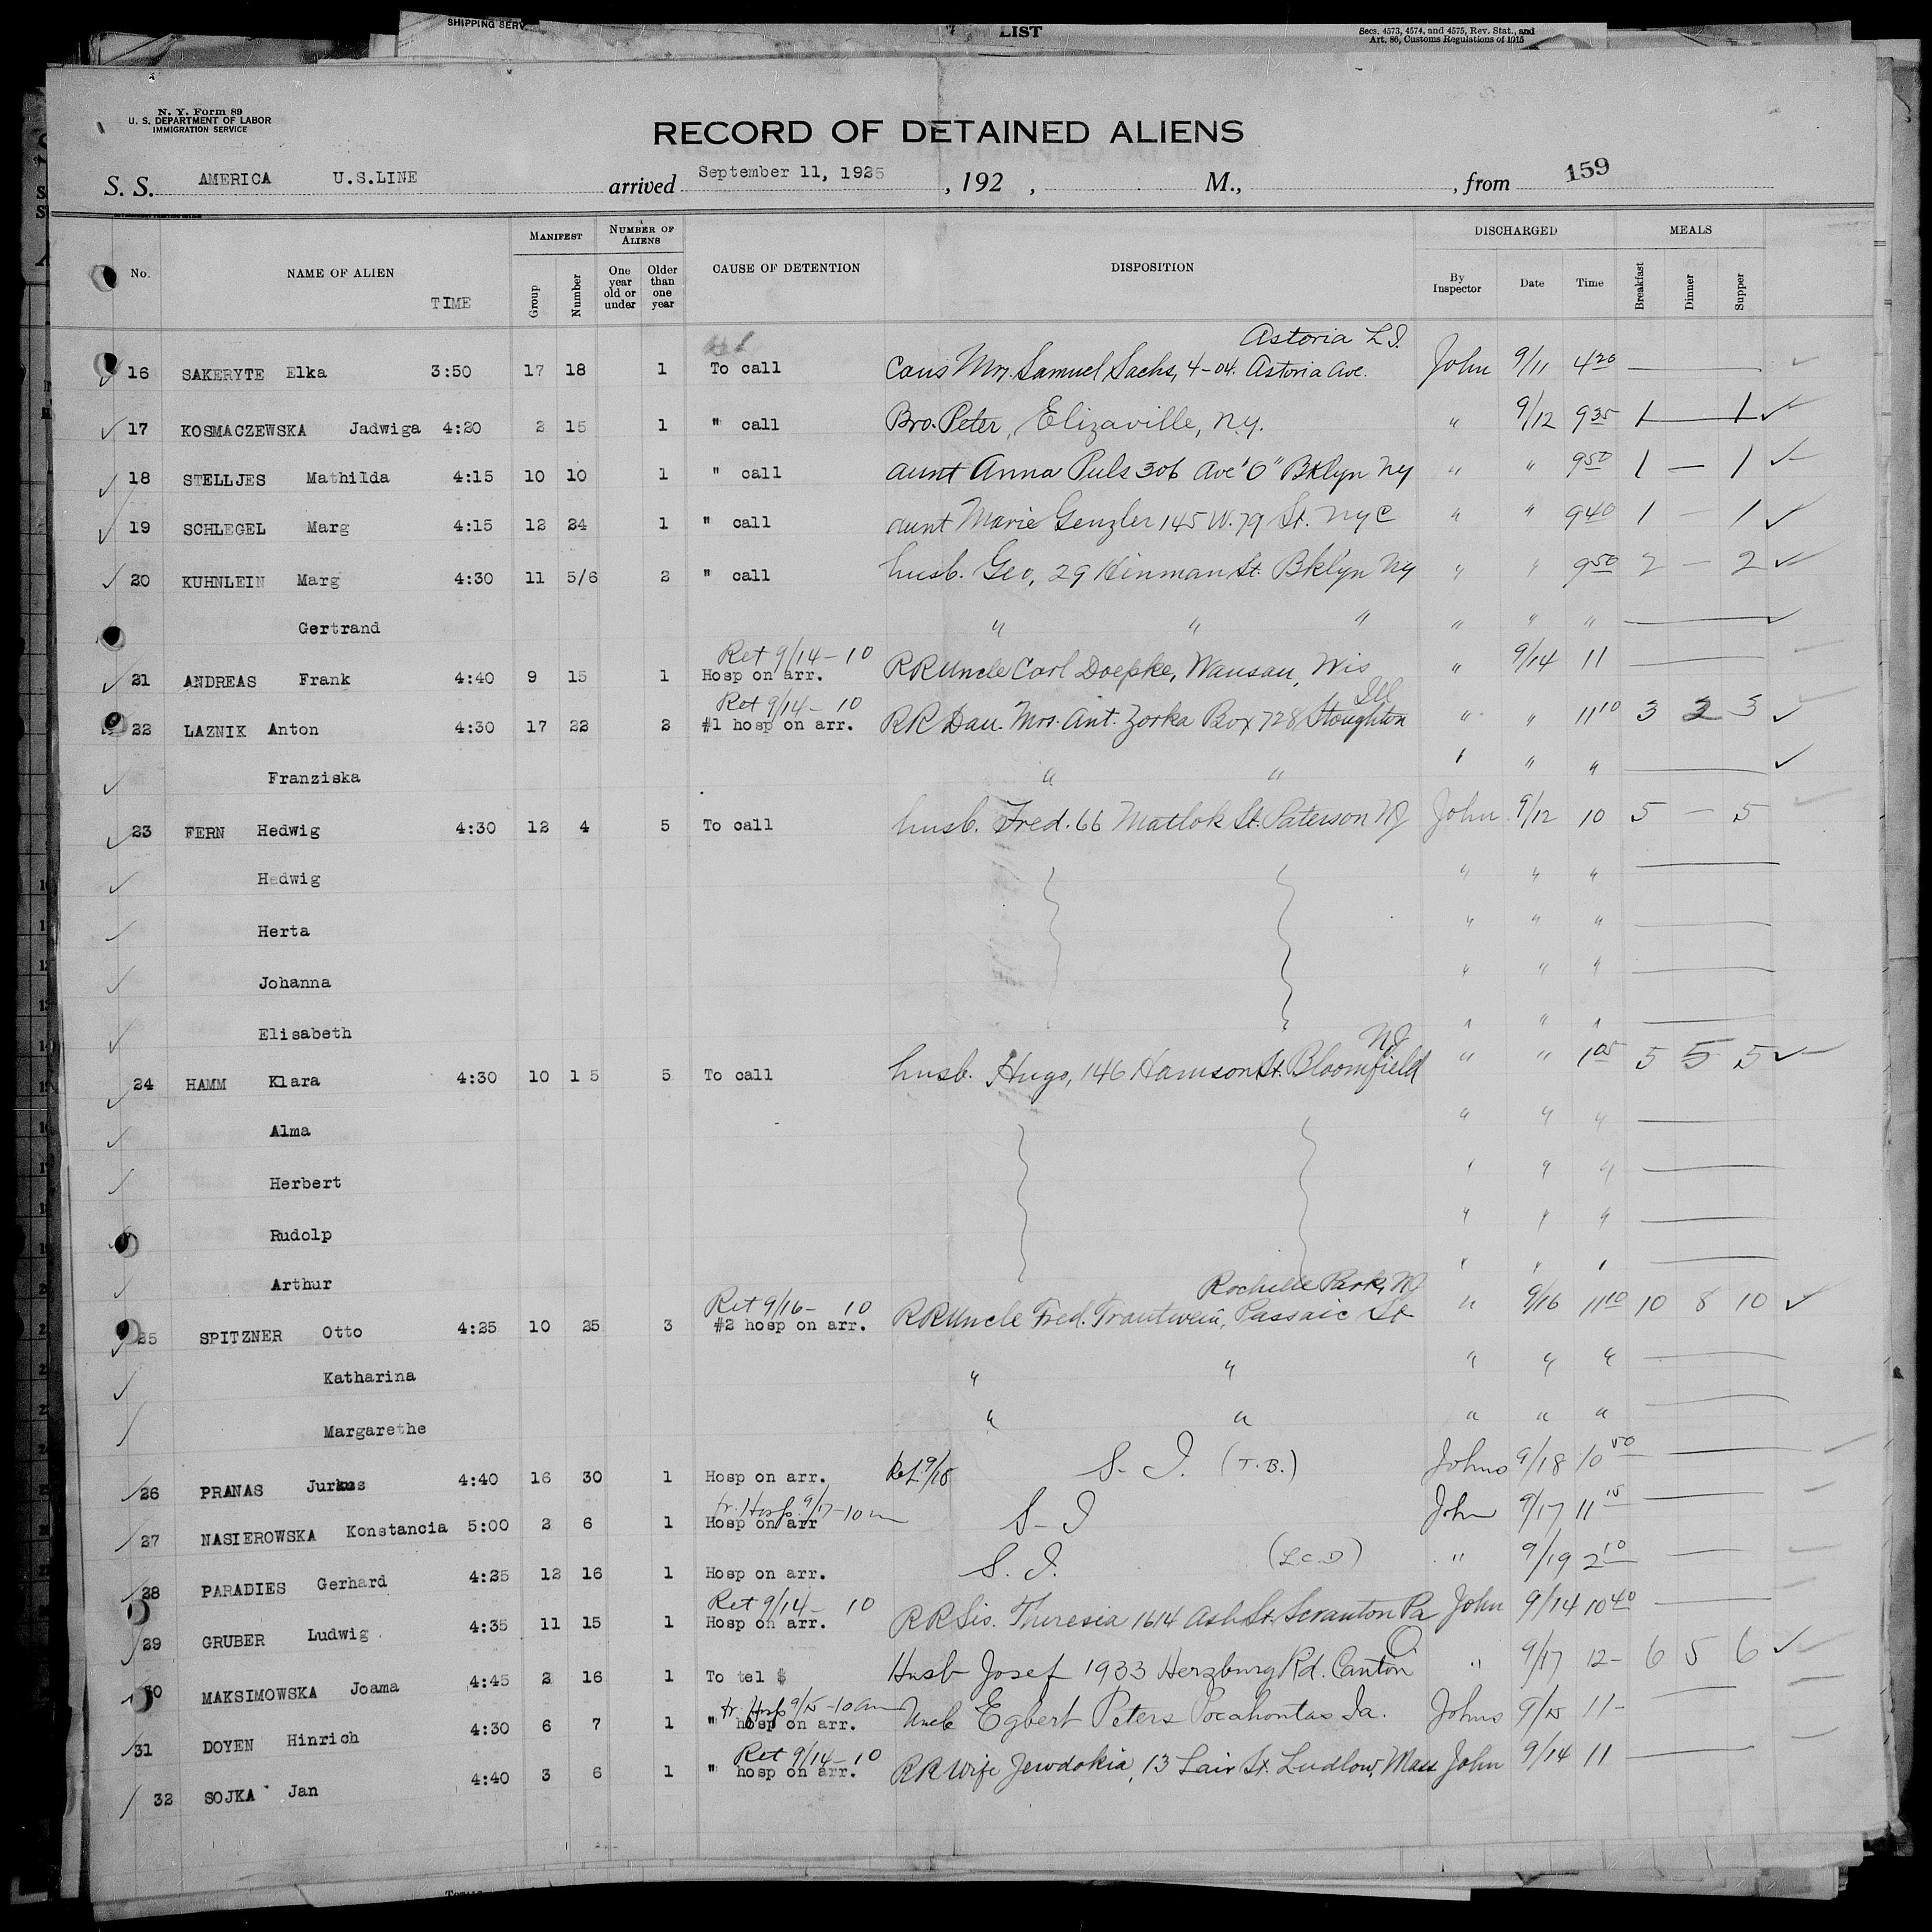 SHIPPING SERV
LIST
Secs. 4573, 4574, and 4575, Rev. Stat., and
Art. 86, Customs Regulations of 1915
N. Y. Form 89
U. S. DEPARTMENT OF LABOR
IMMIGRATION SERVICE
RECORD OF DETAINED ALIENS
S. S. AMERICA U.S.LINE arrived September 11, 1925, 192 , M., , from 159
No. NAME OF ALIEN TIME MANIFEST Group Number NUMBER OF ALIENS One year old or under Older than one year CAUSE OF DETENTION DISPOSITION DISCHARGED By Inspector Date Time MEALS Breakfast Dinner Supper
Astoria L.I.
16 SAKERYTE Elka 3:50 17 18 1 To call Cous Mrs. Samuel Sachs, 4-04. Astoria Ave. John 9/11 4 20
17 KOSMACZEWSKA Jadwiga 4:20 2 15 1 " call Bro. Peter, Elizaville, N.Y. " 9/12 9 35 1 — 1
18 STELLJES Mathilda 4:15 10 10 1 " call aunt Anna Puls 306 Ave "O" Bklyn NY " " 9 50 1 — 1
19 SCHLEGEL Marg 4:15 12 24 1 " call aunt Marie Genzler 145 W. 79 St. NYC " " 9 40 1 — 1
20 KUHNLEIN Marg 4:30 11 5/6 2 " call husb. Geo, 29 Hinman St. Bklyn NY " " 9 50 2 — 2
Gertrand " " " " " "
Ret 9/14 - 10
21 ANDREAS Frank 4:40 9 15 1 Hosp on arr. RR Uncle Carl Doepke, Wausau, Wis " 9/14 11
Ret 9/14 - 10 Ill
22 LAZNIK Anton 4:30 17 22 2 #1 hosp on arr. RR Dau. Mrs. Ant. Zorka Box 728 Stoughton " " 11 10 3 2 3
Franziska " " " " "
23 FERN Hedwig 4:30 12 4 5 To call husb. Fred. 66 Matlok St. Paterson NJ John 9/12 10 5 — 5
Hedwig " " "
Herta " " "
Johanna " " "
Elisabeth " " "
NJ
24 HAMM Klara 4:30 10 15 5 To call husb. Hugo, 146 St. Bloomfield " " 1 05 5 5 5
Alma " " "
Herbert " " "
Rudolp " " "
Arthur " " "
Ret 9/16 - 10 Rochelle Park, NJ
25 SPITZNER Otto 4:25 10 25 3 #2 hosp on arr. RR Uncle Fred. Trautwein, Passaic St " 9/16 11 10 10 8 10
Katharina " " " " "
Margarethe " " " " "
26 PRANAS Jurkus 4:40 16 30 1 Hosp on arr. Ret. 9/18 S. I. (T.B.) Johns 9/18 10 50
tr. Hosp. 9/17-10 am
27 NASIEROWSKA Konstancia 5:00 2 6 1 Hosp on arr S-I John 9/17 11 15
28 PARADIES Gerhard 4:25 12 16 1 Hosp on arr. S. I. (L.C.D) " 9/19 2 10
Ret 9/14 - 10
29 GRUBER Ludwig 4:35 11 15 1 Hosp on arr. RR Sis. Theresia 1614 Ash St. Scranton Pa John 9/14 10 40
30 MAKSIMOWSKA Joama 4:45 2 16 1 To tel $ Husb Josef 1933 Herzburg Rd. Canton O " 9/17 12- 6 5 6
tr. Hosp 9/15-10 am
31 DOYEN Hinrich 4:30 6 7 1 " hosp on arr. Uncle Egbert Peters Pocahontas Ia. Johns 9/15 11-
Ret 9/14-10
32 SOJKA Jan 4:40 3 6 1 " hosp on arr. RR Wife Jewdokia, 13 Lair St. Ludlow, Mass John 9/14 11